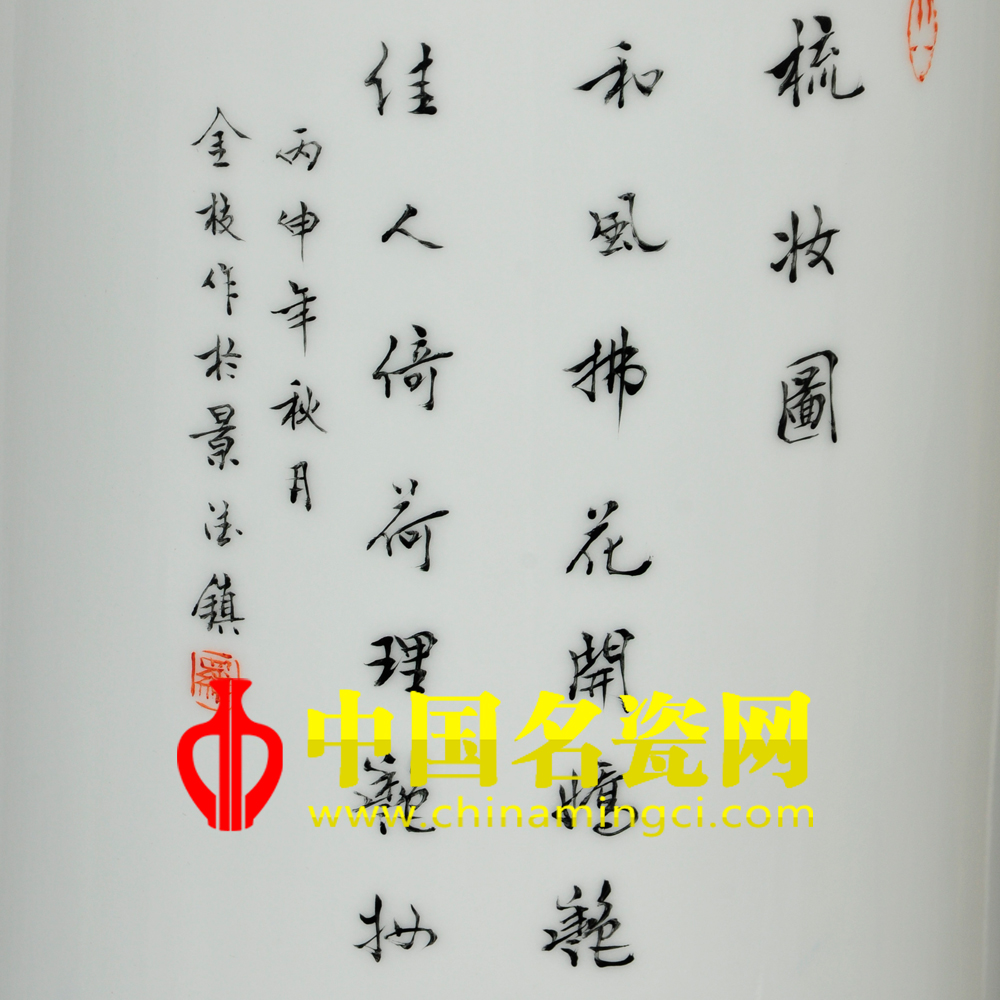 梳妆圖
和風拂花開憶艷
佳人倚荷理艷妝
丙申年秋月
金枝作於景德鎮
中国名瓷网
www.chinamingci.com